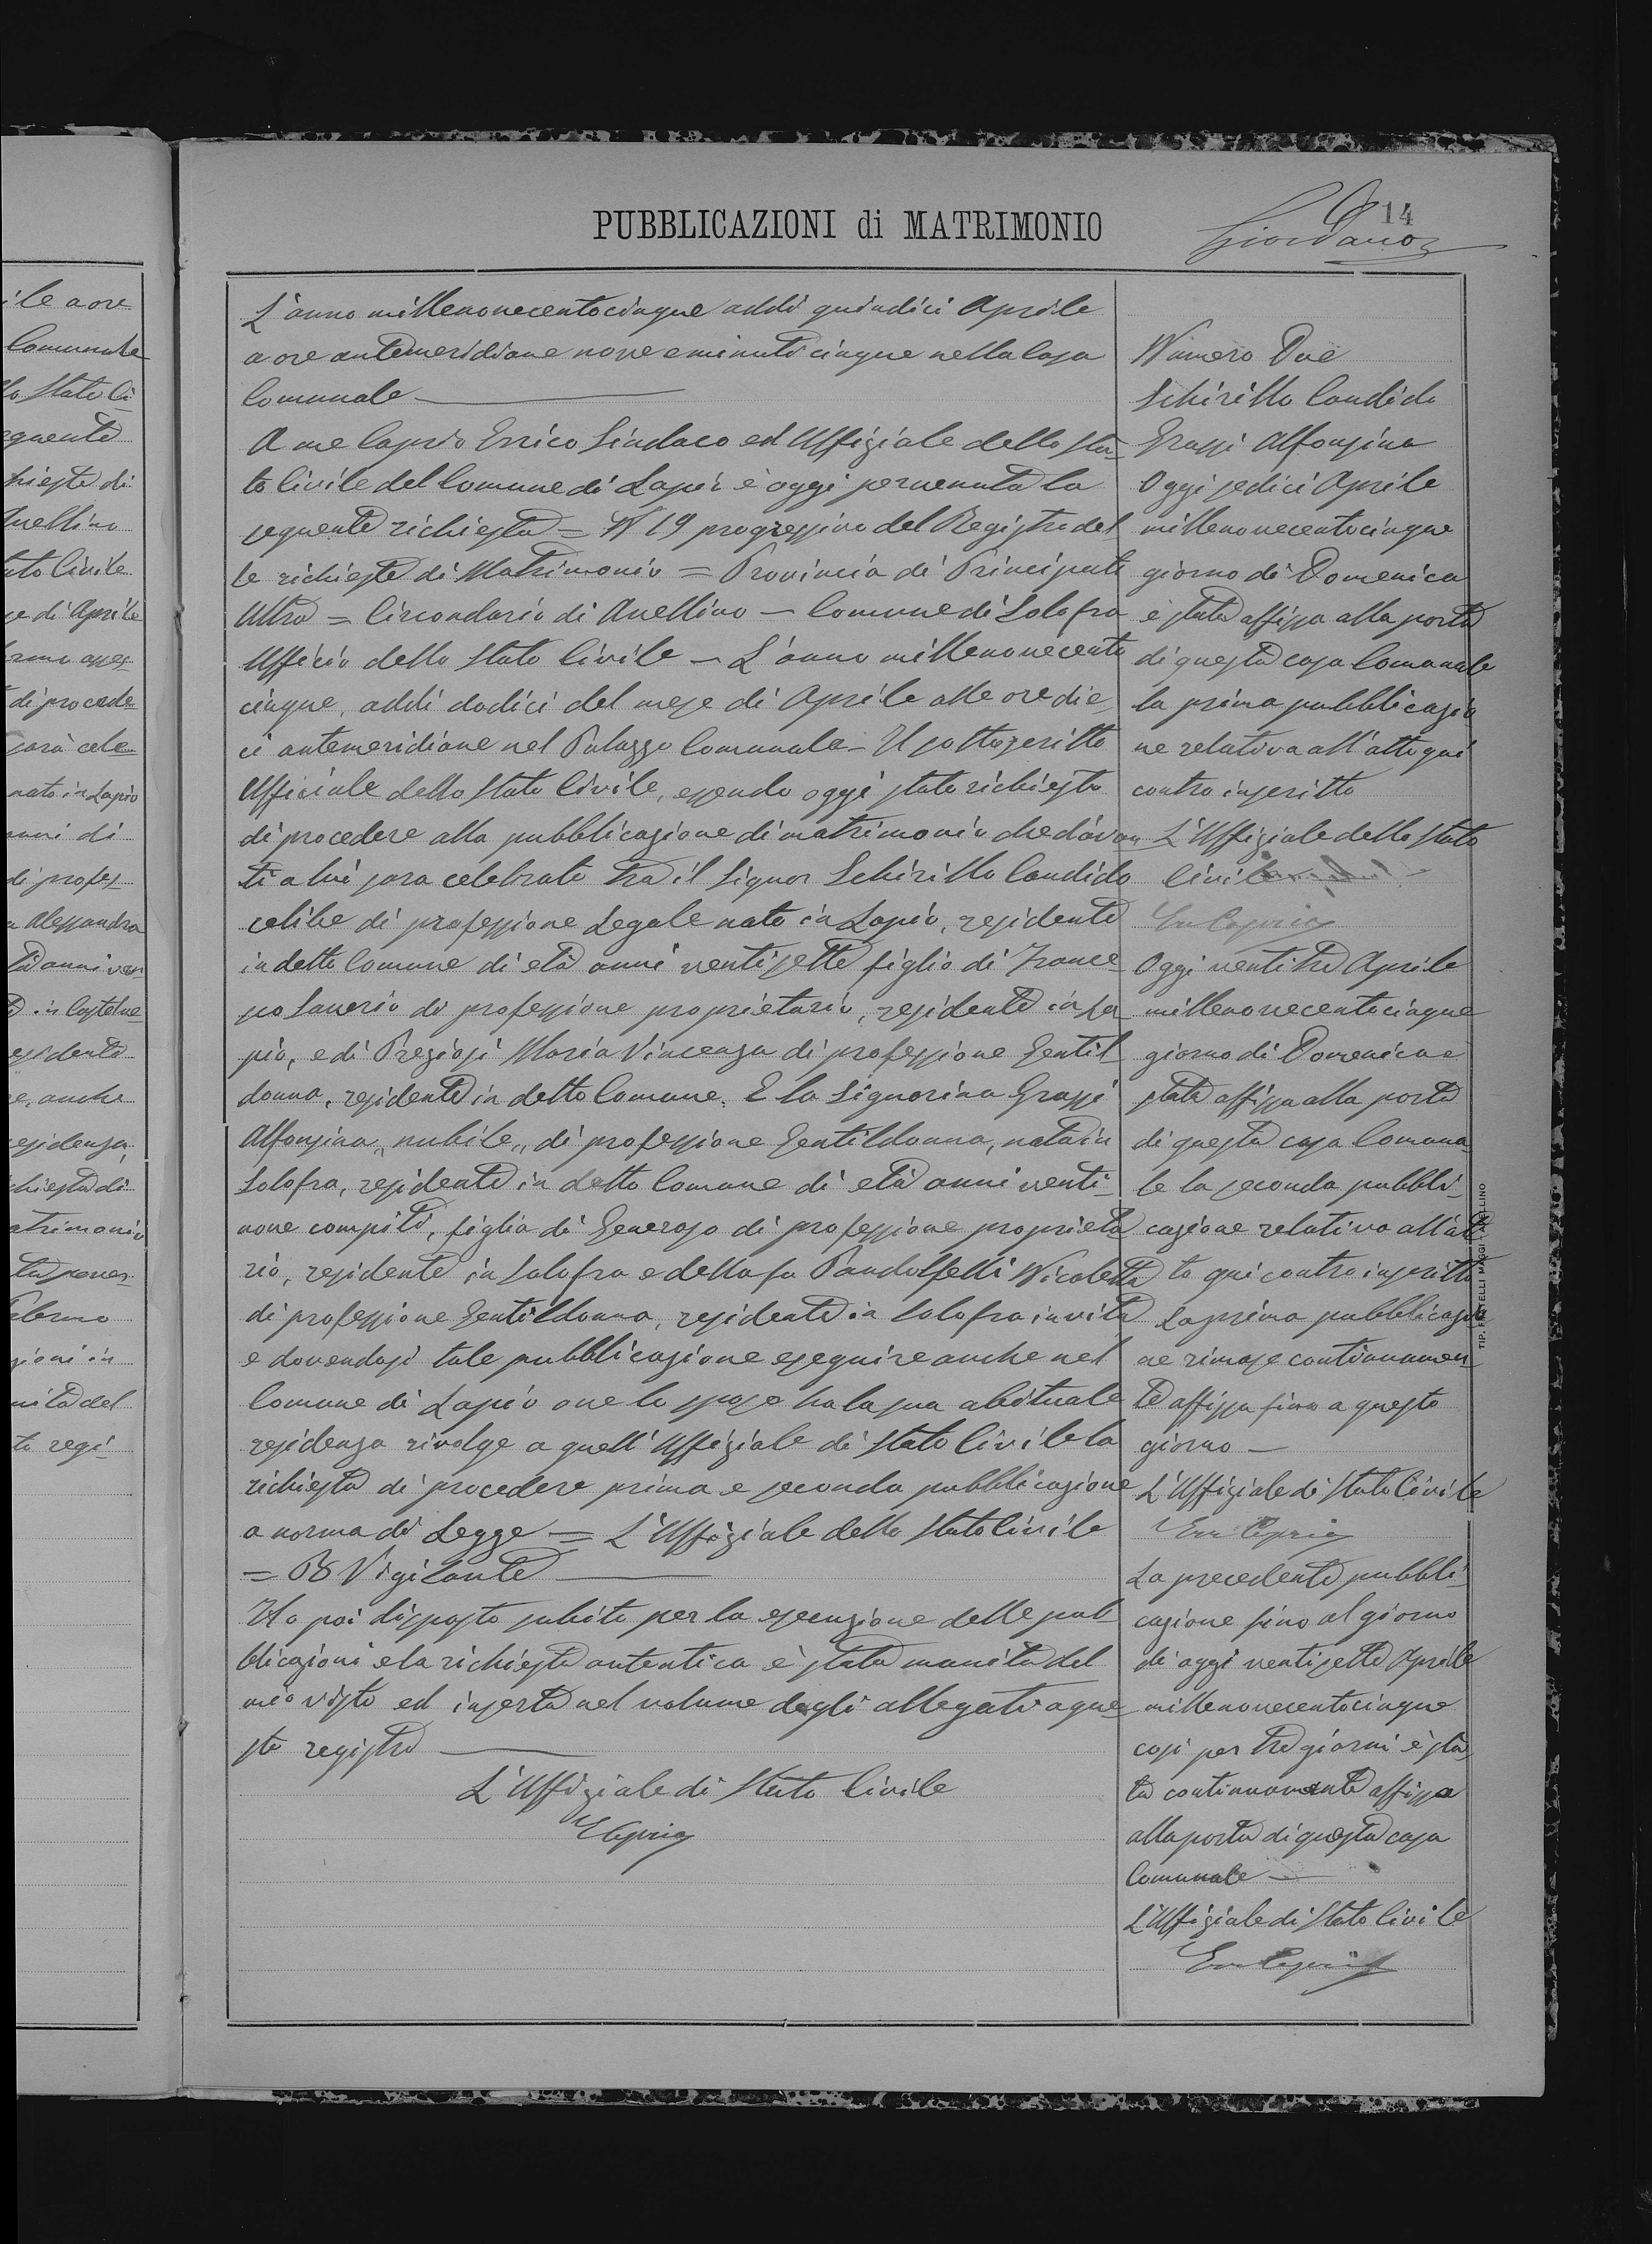 PUBBLICAZIONI di MATRIMONIO
14
Giordano
L'anno millenovecentocinque addì quindici Aprile
a ore antemeridiane nove e minuti cinque nella Casa
Comunale
A me Caprio Errico Sindaco ed Uffiziale dello Sta-
to Civile del Comune di Lapio è oggi pervenuta la
seguente richiesta = N 19 progressivo del Registro del
le richieste di Matrimonio = Provincia di Principato
Ultra = Circondario di Avellino - Comune di Solofra
Ufficio dello Stato Civile - L'anno millenovecento
cinque, addì dodici del mese di Aprile alle ore die
ci antemeridiane nel Palazzo Comunale - Il sottoscritto
Ufficiale dello Stato Civile, essendo oggi stato richiesto
di procedere alla pubblicazione di matrimonio che davan
ti a lui sara celebrato tra il Signor Schirillo Candido
celibe di professione Legale nato in Lapio, residente
in detto Comune di età anni ventisette figlio di France-
sco Saverio di professione proprietario, residente in La
pio, e di Preziosi Maria Vincenza di professione Gentil
donna, residente in detto Comune. E la Signorina Grassi
Alfonsina, nubile, di professione Gentildonna, nata in
Solofra, residente in detto Comune di età anni venti-
nove compiti, figlia di Generoso di professione proprieta
rio, residente in Solofra e della fu Pandolfelli Nicoletta
di professione Gentildonna, residente in Solofra in vita
e dovendosi tale pubblicazione eseguire anche nel
Comune di Lapio ove lo sposo ha la sua abituale
residenza rivolge a quell'Uffiziale di Stato Civile la
richiesta di procedere prima e seconda pubblicazione
a norma di Legge = L'Uffiziale dello Stato Civile
= B Vigilante
Ho poi disposto subito per la esecuzione delle pub
blicazioni e la richiesta autentica è stata munita del
mio visto ed inserta nel volume degli allegati a que
sto registro
L'Uffiziale di Stato Civile
ECaprio
Numero Due
Schirillo Candido
Grassi Alfonsina
Oggi sedici Aprile
millenovecentocinque
giorno di Domenica
è stata affissa alla porta
di questa casa Comunale
la prima pubblicazio
ne relativa all'atto qui
contro inscritto
L'Uffiziale dello Stato
Civile
Err Caprio
Oggi ventitre Aprile
millenovecentocinque
giorno di Domenica e
stata affissa alla porta
di questa casa Comuna
le la seconda pubbli-
cazione relativa all'at
to qui contro inscritto
La prima pubblicazio
ne rimase continuamen
te affissa fino a questo
giorno -
L'Uffiziale di Stato Civile
Err Caprio
La precedente pubbli-
cazione fino al giorno
di oggi ventisette Aprile
millenovecentocinque
cosi per tre giorni è sta
ta continuamente affissa
alla porta di questa casa
Comunale
L'Uffiziale di Stato Civile
Err Caprio
TIP. FRATELLI MAGGI - AVELLINO
ile a ore
Comunale
lo Stato Ci
eguente
hiesta di
Avellino
ato Civile
se di Aprile
di procede
sarà cele
nato in Lapio
anni di
di profes
a Alessandra
tà anni ven
esidente
e, anche
esidenza
chiesta di
atrimonio
Palermo
zioni in
nita del
to regi-